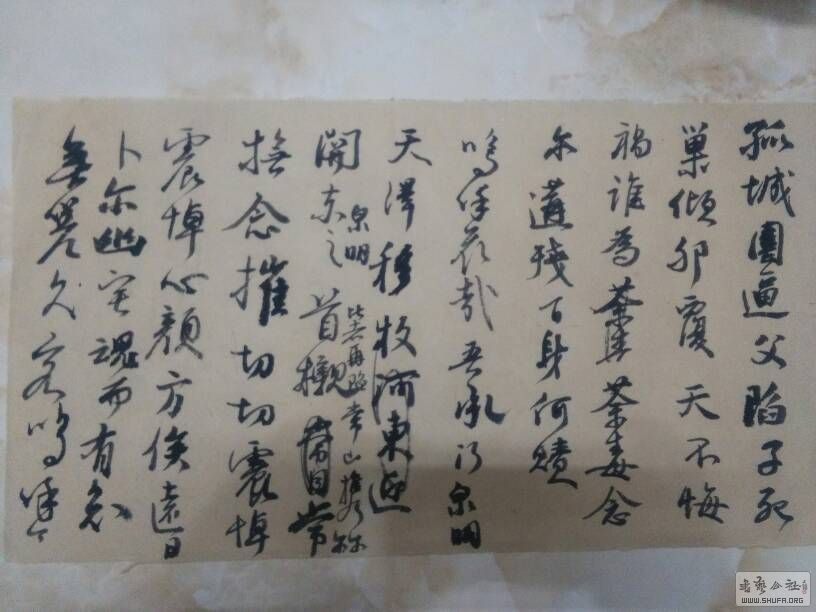 孤城圍逼父陷子死
巢傾卵覆天不悔
禍誰為荼毒念
尔遘殘百身何贖
嗚呼哀哉吾承 泉明
天澤移牧河東近
關尔之首櫬
泉明
比者再陷常山攜尔
撫念摧切切震悼
震悼心顏方俟遠日
卜尔幽宅魂而有知
無嗟久客嗚呼
書藝公社
WWW.SHUFA.ORG